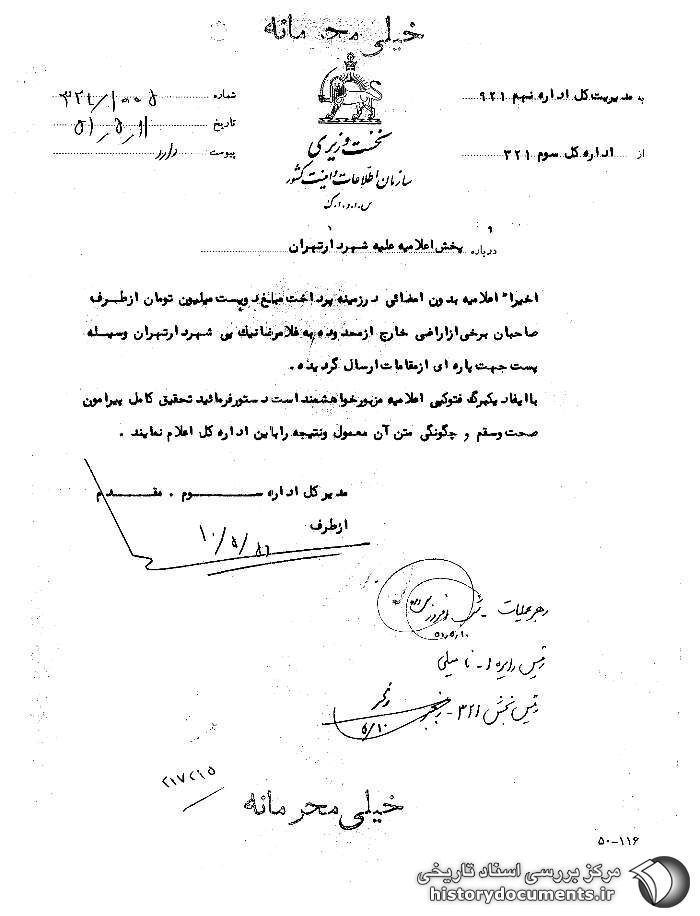 خیلی محرمانه
به مدیریت کل اداره نهم ۹۲۱
از اداره کل سوم ۳۲۱
نخست وزیری
سازمان اطلاعات و امنیت کشور
س.ا.و.ا.ک
شماره
تاریخ
پیوست دارد
درباره پخش اعلامیه علیه شهردار تهران
اخیراً اعلامیه بدون امضائی در زمینه پرداخت مبلغ دویست میلیون تومان از طرف
صاحبان برخی از اراضی خارج از محدوده به غلامرضا نیک پی شهردار تهران وسیله
پست جهت پاره ای از مقامات ارسال گردیده .
با ایفاد یکبرگ فتوکپی اعلامیه مزبور خواهشمند است دستور فرمائید تحقیق کامل پیرامون
صحت و سقم و چگونگی متن آن معمول و نتیجه را باین اداره کل اعلام نمایند .
مدیر کل اداره سوم . مقدم
از طرف
رهبر عملیات -
رئیس دایره ۱ -
رئیس بخش ۳۲۱ -
۵/۱۰
۲۱۷۲۱۵
خیلی محرمانه
۵۰-۱۱۶
مرکز بررسی اسناد تاریخی
historydocuments.ir